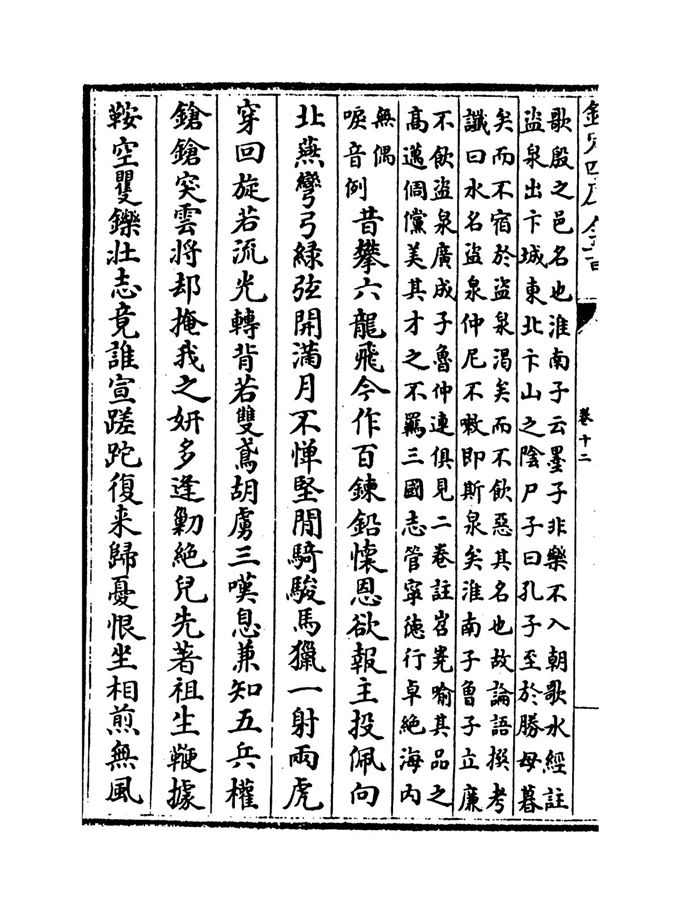 欽定四庫全書
卷十二
歌殷之邑名也淮南子云墨子非樂不入朝歌水經註
盜泉出卞城東北卞山之陰尸子曰孔子至於勝母暮
矣而不宿於盜泉渴矣而不飲惡其名也故論語撰考
讖曰水名盜泉仲尼不漱即斯泉矣淮南子魯子立廉
不飲盜泉廣成子魯仲連俱見二卷註岧嶤喻其品之
高邁倜儻美其才之不羈三國志管寧德行卓絶海内
無偶
唳音例
昔攀六龍飛今作百鍊鉛懷恩欲報主投佩向
北燕彎弓緑弦開滿月不憚堅閒騎駿馬獵一射兩虎
穿回旋若流光轉背若雙鳶胡虜三嘆息兼知五兵權
鎗鎗突雲將却掩我之妍多逢勦絶兒先著祖生鞭據
鞍空矍鑠壯志竟誰宣蹉跎復来歸憂恨坐相煎無風